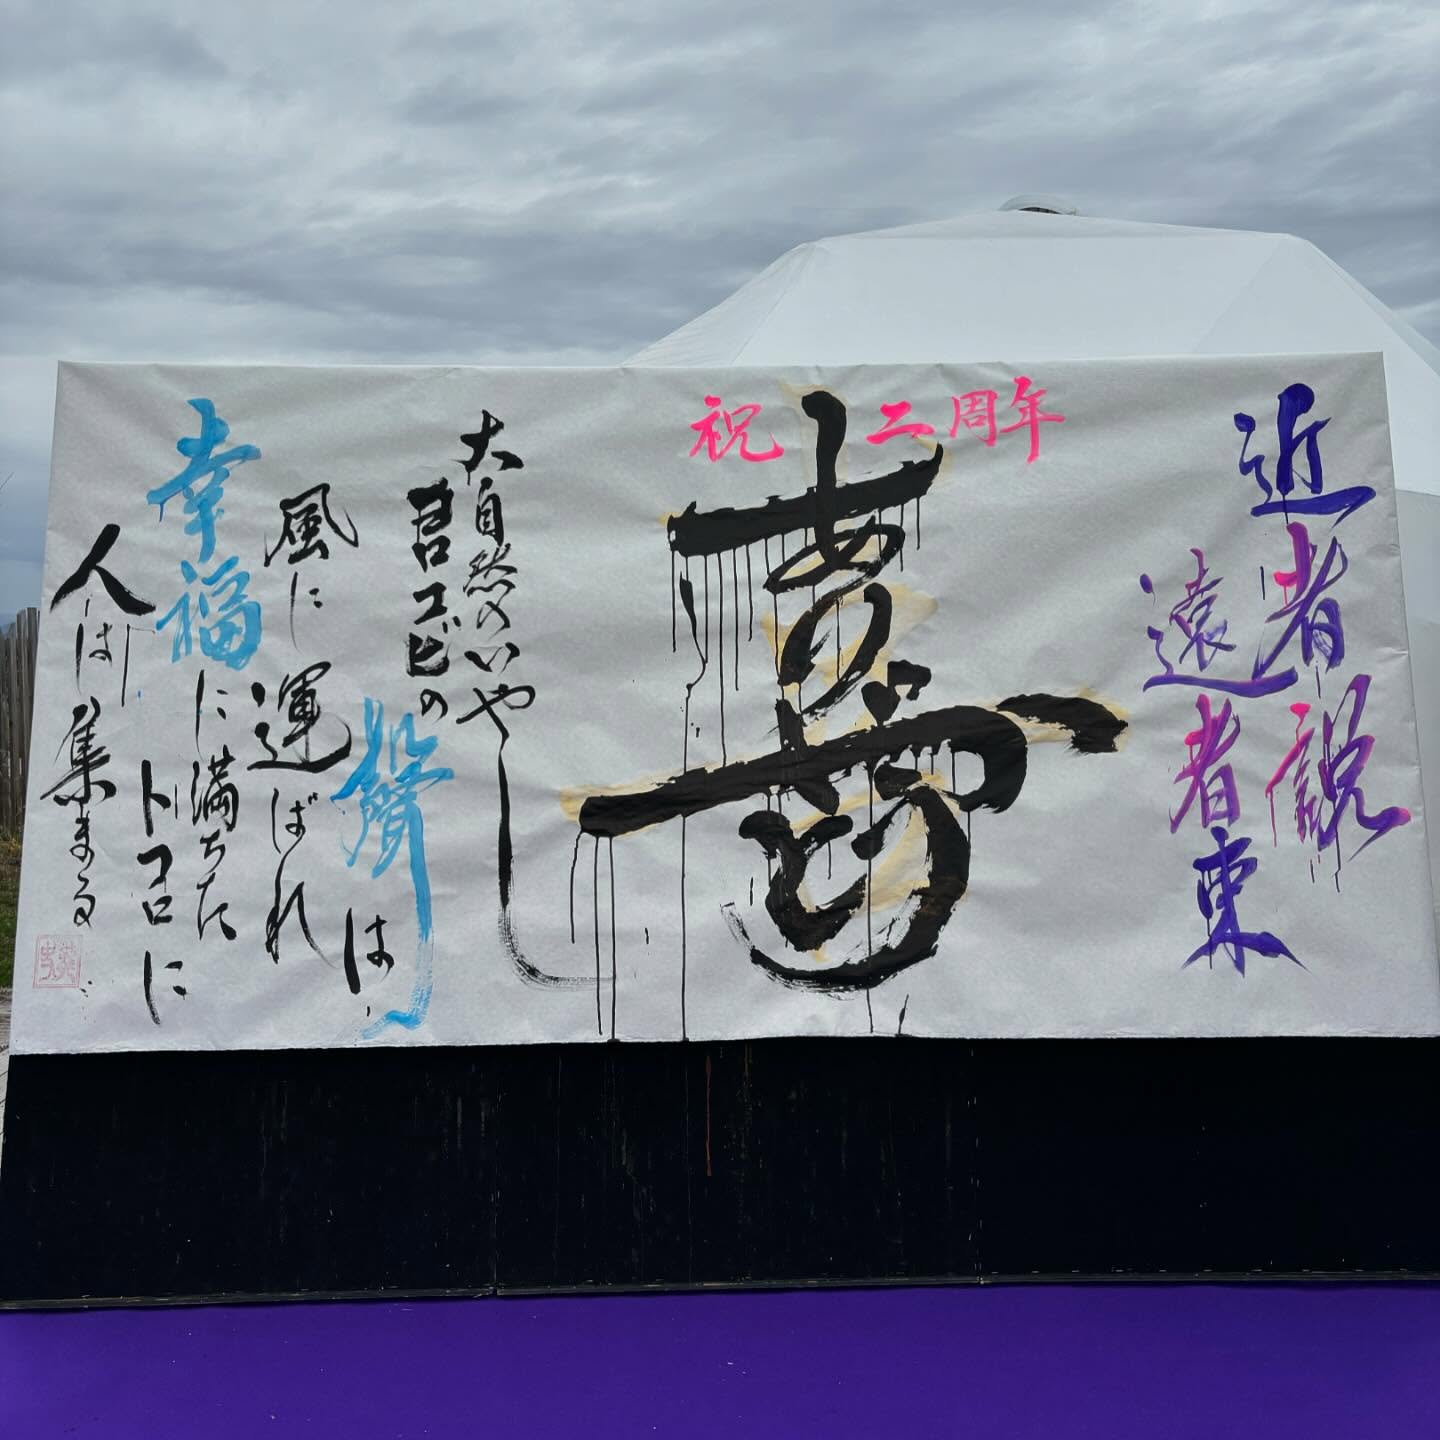 近者説
遠者來
祝二周年
大自然のいやし
ヨロコビの聲は、
風に運ばれ
幸福に満ちたトコロに
人は集まる